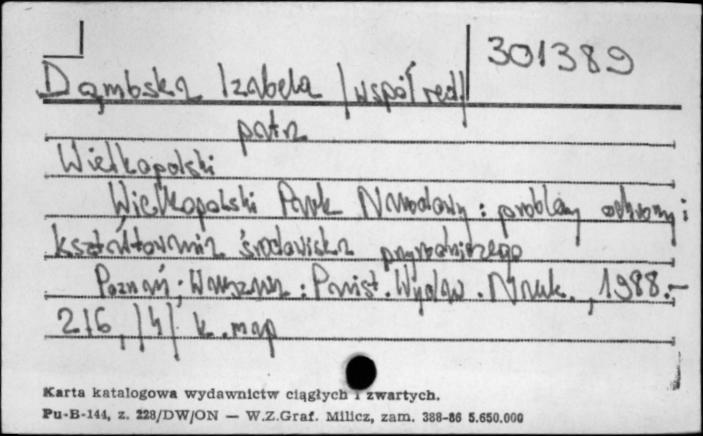 301389
Dąmbska Izabela /współred./
patrz
Wielkopolski
Wielkopolski Park Narodowy : problemy ochrony i
kształtowania środowiska przyrodniczego
Poznań ; Warszawa : Państ. Wydaw. Nauk., 1988.-
216, /4/ k. map
Karta katalogowa wydawnictw ciągłych i zwartych.
Pu-B-144, z. 228/DW/ON — W.Z.Graf. Milicz, zam. 388-86 5.650.000